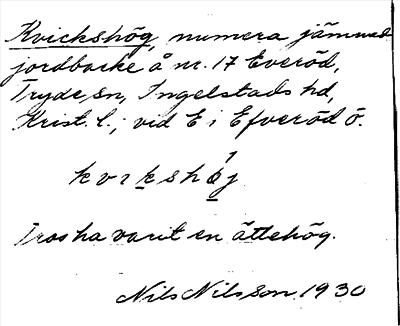 Kvickshög, numera jämnad
jordbacke å nr. 17 Everöd,
Tryde sn, Ingelstads hd,
Krist. l.; vid E i Efveröd ö.
kvikshöj
Tros ha varit en ättehög.
Nils Nilsson 1930